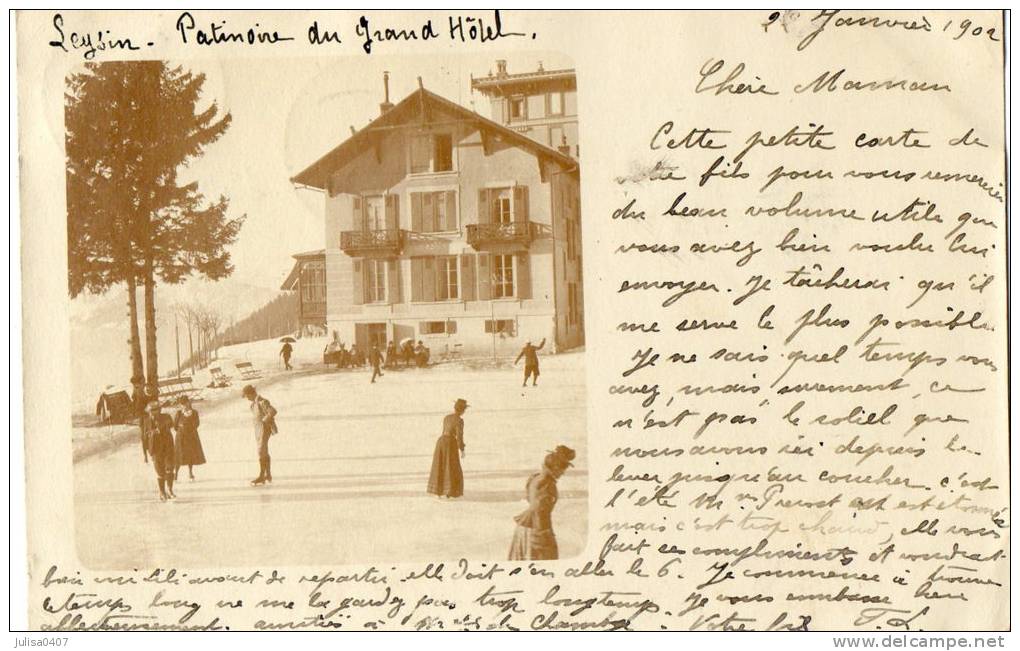 Leysin - Patinoire du Grand Hôtel.
Janvier 1902
Chère Maman
Cette petite carte de
fils pour vous remercier
du beau volume utile que
vous avez bien voulu lui
envoyer. Je tâcherai qu'il
me serve le plus possible.
Je ne sais quel temps vous
avez, mais, surement, ce
n'est pas le soleil que
nous avons ici depuis le
lever jusqu'au coucher. c'est
l'été Mr Prevost est étonnée
mais c'est trop chaud, elle vous
fait ses compliments et voudrait
bien avant de repartir elle doit s'en aller le 6. Je commence à trouver
le temps long ne me la gardez pas trop longtemps. Je vous embrasse bien
affectueusement. amitiés à Votre fils F. L.
julisa0407
http://www.delcampe.net